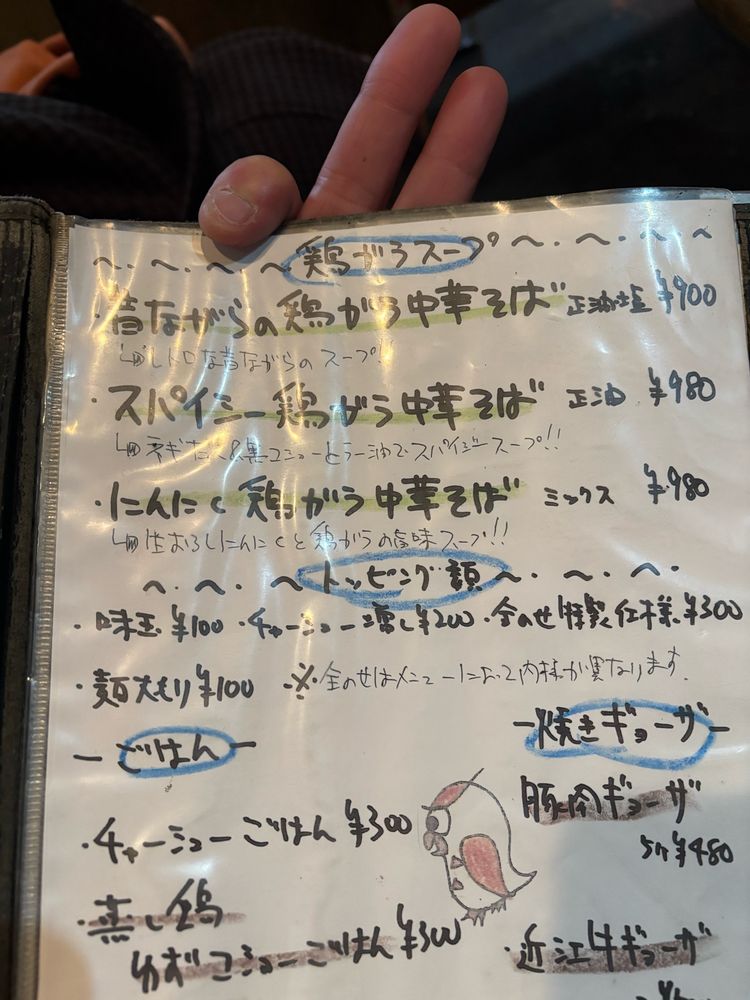 ～・～・～・～鶏がらスープ～・～・～・～
・昔ながらの鶏がら中華そば 正油・塩 ¥900
↳レトロな昔ながらのスープ!!
・スパイシー鶏がら中華そば 正油 ¥980
黒コショーとラー油でスパイシースープ!!
・にんにく鶏がら中華そば ミックス ¥980
↳生おろしにんにくと鶏がらの旨味スープ!!
～・～・～トッピング類～・～・～・
・味玉¥100 ・チャーシュー増し¥200 ・全のせ特製仕様¥300
・麺大もり¥100 ※全のせはメニューによって内様が異なります。
ーごはんー
ー焼きギョーザー
・チャーシューごはん¥300
豚肉ギョーザ
5ヶ¥480
・蒸し鶏
ゆずコショーごはん¥300
・近江牛ギョーザ